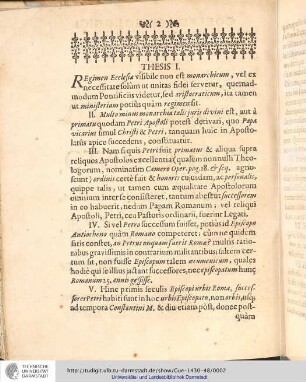 2
THESIS I.
Regimen Ecclesiæ visibile non est monarchicum, vel ex
necessitate solùm ut unitas fidei servetur, quemad-
modum Pontificiis videtur, sed aristocraticum, ita tamen
ut ministerium potiùs quàm regimen sit.
II. Multo minus monarchia talis juris divini est, aut à
primatu quodam Petri Apostoli potest derivari, quo Papa
vicarius simul Christi & Petri, tanquam huic in Aposto-
latu apice succedens, constituatur.
III. Nam si quis Petro fuit primatus & aliqua supra
reliquos Apostolos excellentia (qualem nonnulli Theo-
logorum, nominatim Camero Oper. pag. 18. & seq. agno-
scunt) ordinis certè fuit & honoris cujusdam, ac personalis,
quippe talis, ut tamen cum æqualitate Apostolorum
omnium inter se consisteret, tantum abest ut successorem
in eo habuerit, nedum Papam Romanum, vel reliqui
Apostoli, Petri, ceu Pastoris ordinarii, fuerint Legati.
IV. Si vel Petro successum fuisset, potiùs id Episcopo
Antiocheno quàm Romano competeret: cùm ne quidem
satis constet, an Petrus unquam fuerit Romæ? multis ratio-
nibus gravissimis in contrarium militantibus: saltem cer-
tum sit, non fuisse Episcopum talem œcumenicum, quales
hodie se illius jactant successores, nec episcopatum hunc
Romanum 25. annis gessisse.
V. Hinc primis seculis Episcopi urbis Romæ, succes-
sores Petri habiti sunt in hoc urbis Episcopatu, non orbis, usque
ad tempora Constantini M. & diu etiam pòst, donec post-
quàm
TECHNISCHE
UNIVERSITÄT
DARMSTADT
http://tudigit.ulb.tu-darmstadt.de/show/Gue-1430-48/0002
Universitäts- und Landesbibliothek Darmstadt